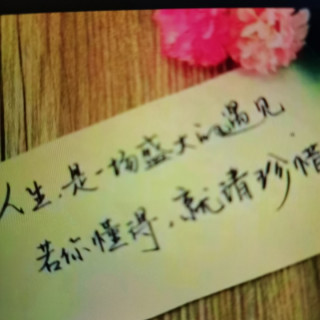 人生，是一场盛大的遇见．
若你懂得，就请珍惜